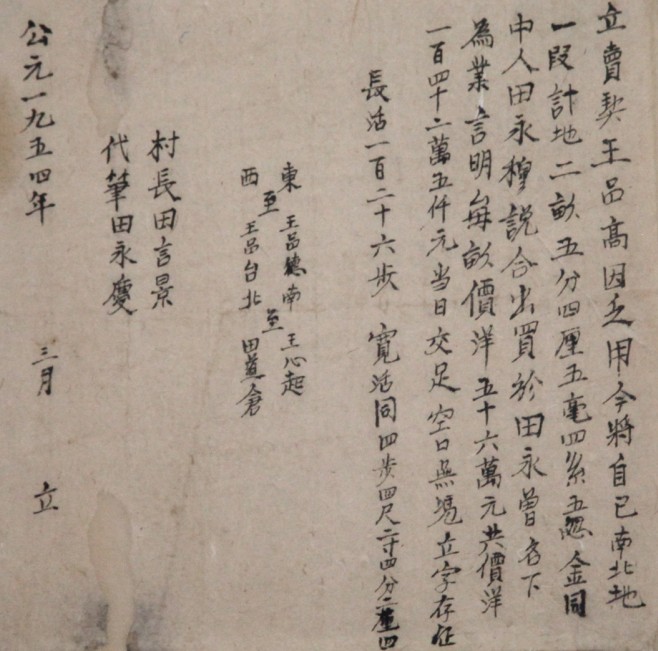 立賣契王吕高因乏用今將自己南北地
一段計地二畝五分四厘五毫四系五忽仝同
中人田永穆說合出買於田永曾名下
為業言明每畝價洋五十六萬元共價洋
一百四十二萬五仟元当日交足空口無凴立字存证
長活一百二十六步 寬活同四步四尺二寸四分二厘四
東 王吕德 南 王心起
至 至
西 王吕台 北 田道倉
村長田言景
代筆田永慶
公元一九五四年 三月 立